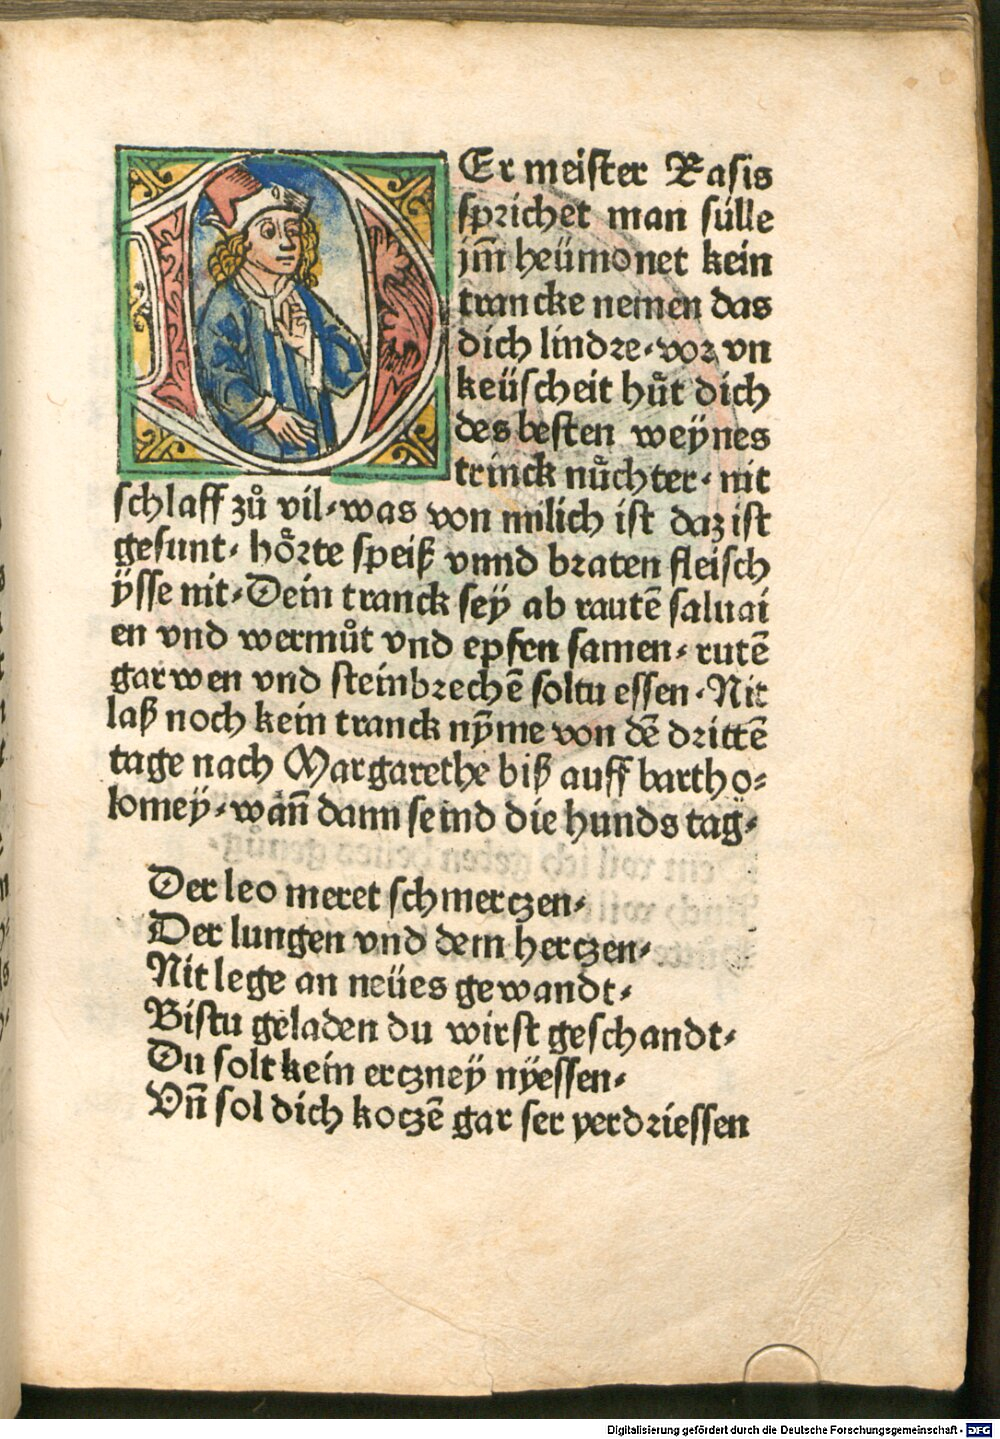 DEr meister Rasis
sprichet man sülle
jm̄ heümonet kein
trancke nemen das
dich lindre·vor vn
keüscheit hůt dich
des besten weÿnes
trinck nůchter· nit
schlaff zů vil·was von milich ist daz ist
gesunt· hörte speiß vnnd braten fleisch
ÿsse nit·Dein tranck seÿ ab rautē saluai
en vnd wermůt vnd epfen samen· rutē
garwen vnd steinbrechē soltu essen·Nit
laß noch kein tranck nÿme von dē drittē
tage nach Margarethe biß auff bartho⸗
lomeÿ·wañ dann seind die hunds tag·
Der leo meret schmerczen·
Der lungen vnd dem herczen·
Nit lege an neües gewandt·
Bistu geladen du wirst geschandt·
Du solt kein erczneÿ nÿessen·
Vñ sol dich koczē gar ser verdriessen
Digitalisierung gefördert durch die Deutsche Forschungsgemeinschaft - DFG